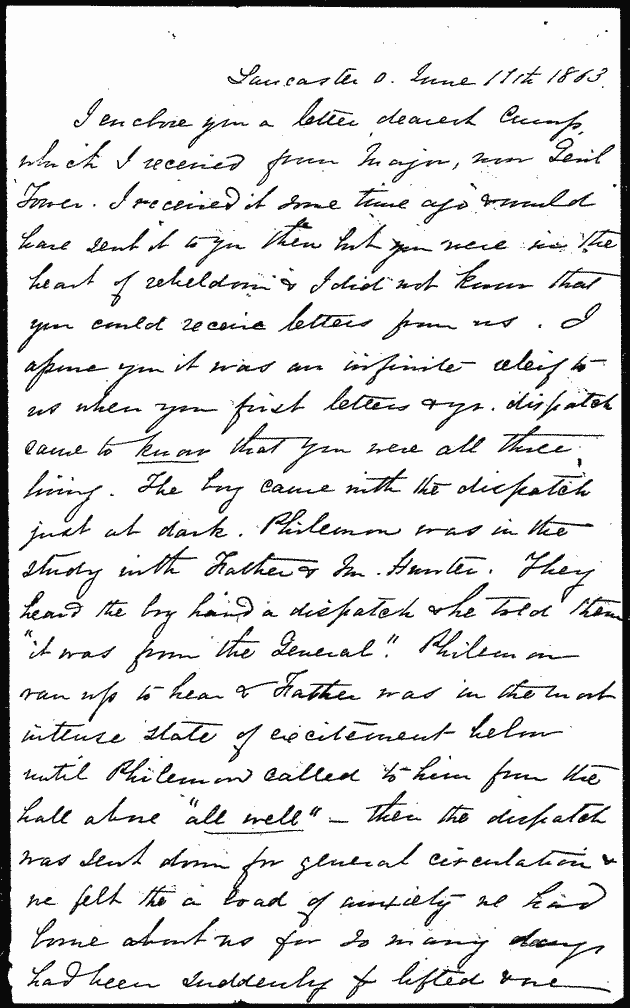 Lancaster O. June 17th 1863.
I enclose you a letter, dearest Cump,
which I received from Major, now Genl
Tower. I received it some time ago & would
have sent it to you then but you were in the
heart of rebeldom & I did not know that
you could receive letters from us. I
assure you it was an infinite relief to
us when your first letters & yr. dispatch
came to know that you were all three
living. The boy came with the dispatch
just at dark. Philemon was in the
study with Father & Mr. Hunter. They
heard the boy hand a dispatch & he told them
"it was from the General". Philemon
ran up to hear & Father was in the most
intense state of excitement below
until Philemon called to him from the
hall above "all well" — then the dispatch
was sent down for general circulation &
we felt the a load of anxiety we had
borne about us for so many days
had been suddenly lifted & we